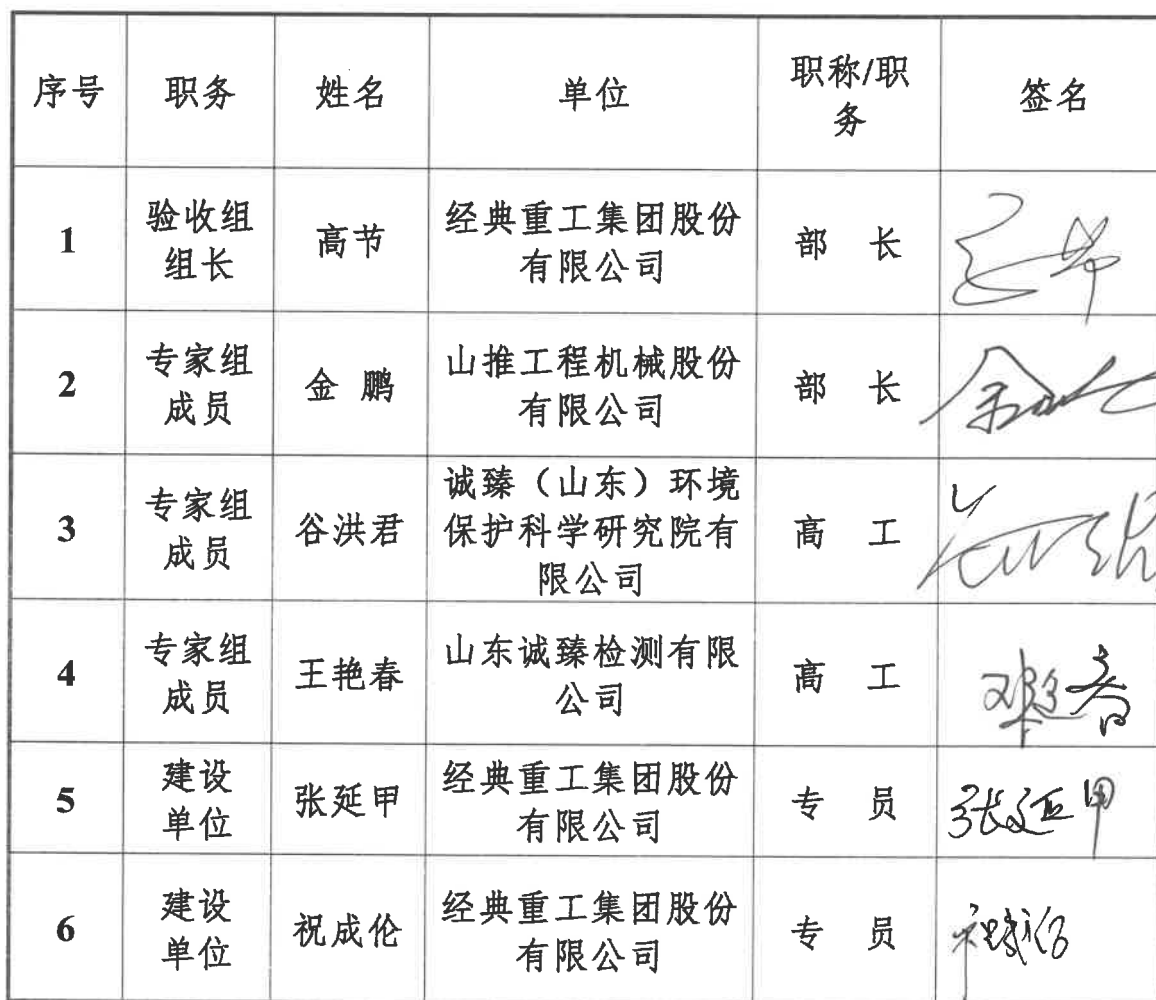 序号 职务 姓名 单位 职称/职
务 签名
1 验收组
组长 高节 经典重工集团股份
有限公司 部 长
2 专家组
成员 金 鹏 山推工程机械股份
有限公司 部 长
3 专家组
成员 谷洪君 诚臻（山东）环境
保护科学研究院有
限公司 高 工
4 专家组
成员 王艳春 山东诚臻检测有限
公司 高 工
5 建设
单位 张延甲 经典重工集团股份
有限公司 专 员 张延甲
6 建设
单位 祝成伦 经典重工集团股份
有限公司 专 员